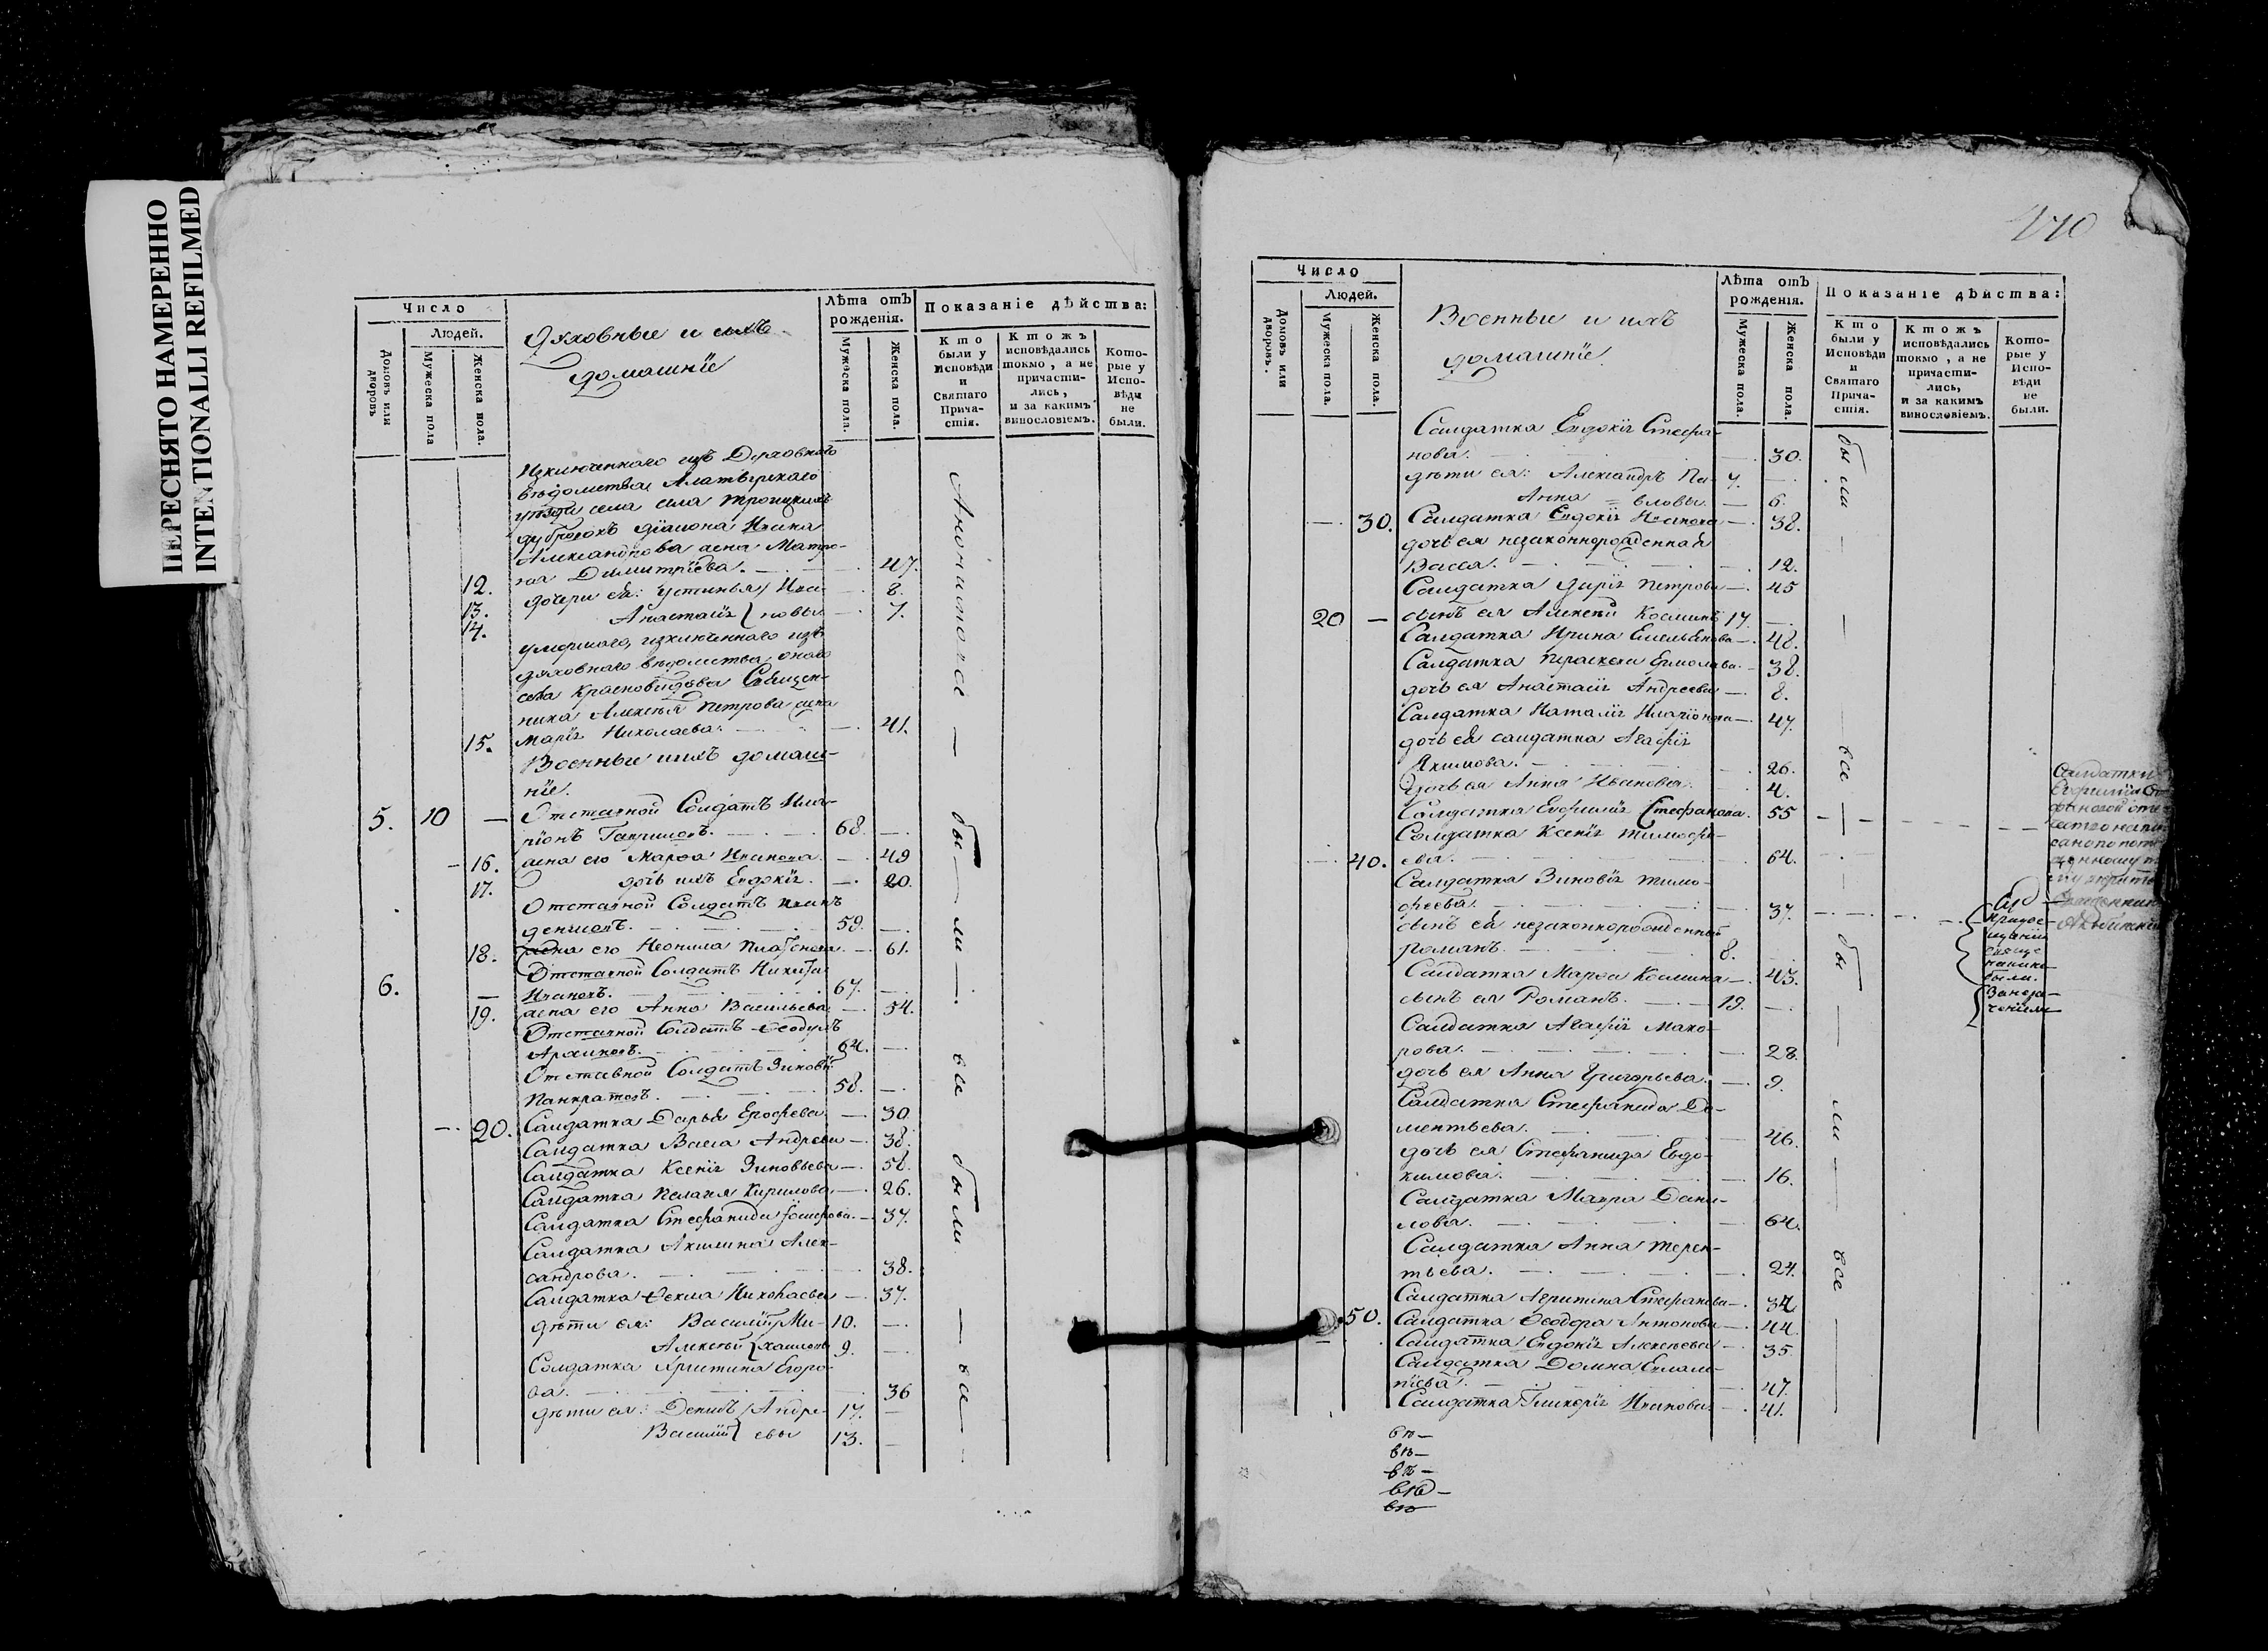 ПЕРЕСНЯТО НАМЕРЕННО
INTENTIONALLI REFILMED
Число
Людей.
Домовъ или дворовъ
Мужеска пола
Женска пола.
Духовные и ихъ
домашнїе
Лѣта отъ
рожденія.
Мужеска пола.
Женска пола.
Показаніе дѣйства:
Кто
были у
Исповѣди
и
Святаго
Прича-
стія.
Ктожъ
исповѣдались
токмо, а не
причасти-
лись,
и за какимъ
винословіемъ.
Кото-
рые у
Испо-
вѣди
не
были.
Изключеннаго изъ Духовнаго
вѣдомства Алатырскаго
уѣзда села Троицкихъ
дубровохъ діакона Ивана
Александрова жена Матро-
12. на Димитріева. — 47.
13. дочери ея: Устинья Ива- — 8.
14. Анастасія новы — 7.
умершаго, изключеннаго изъ
духовнаго вѣдомства, онаго
села Красновидова Священ-
ника Алексѣя Петрова жена
15. Марія Николаева. — 41.
Военные и ихъ домаш-
нїе.
5. 10 — Отставной Солдатъ Ила-
ріонъ Гавриловъ. — 68. —
— 16. жена его Марѳа Иванова. — 49
17. дочь ихъ Евдокія. — 20.
Отставной Солдатъ Иванъ
59. —
18. жена его Неонила Платонова. — 61.
Отставной Солдатъ Никита
6. — Ивановъ. — 67. —
19. жена его Анна Васильева — 54.
Отставной Солдатъ Ѳеодулъ
64. —
Отставной Солдатъ Зиновій
Панкратовъ. — 58. —
— 20. Салдатка Дарья Ерофеева — 30
Салдатка Васса Андреева — 38.
Салдатка Ксенія Зиновьева — 58.
Салдатка Пелагея Кирилова. — 26.
Салдатка Стефанида Іосифова. — 37.
Салдатка Акилина Алек-
сандрова. — 38.
Салдатка Ѳекла Николаева — 37.
дѣти ея: Василій Ми- 10. —
Алексѣй хайловы 9. —
Солдатка Христина Егоро-
ва. — 36
дѣти ея: Денисъ Андре- 17. —
Василій евы 13. —
были все были все
170
Число
Людей.
Домовъ или дворовъ.
Мужеска пола.
Женска пола.
Военные и ихъ
домашнїе
Лѣта отъ
рожденія.
Мужеска пола.
Женска пола.
Показаніе дѣйства:
Кто
были у
Исповѣди
и
Святаго
Прича-
стія.
Ктожъ
исповѣдались
токмо, а не
причасти-
лись,
и за какимъ
винословіемъ.
Кото-
рые у
Испо-
вѣди
не
были.
Салдатка Евдокія Стефа-
нова. — 30.
дѣти ея: Александръ Па- 7. —
Анна — вловы — 6.
— 30. Салдатка Евдокія Иванова — 38.
дочь ея незаконнорожденная
Васса. — 12.
Салдатка Дарія Петрова — 45
20 — сынъ ея Алексѣй Косминъ 17. —
Салдатка Ирина Емельянова — 48.
Салдатка Параскева Ермолаева. — 38.
дочь ея Анастасія Андреева — 8.
Салдатка Наталія Иларіонова — 47.
дочь ея салдатка Агафія
Якимова. — 26.
дочь ея Анна Иванова. 4.
Солдатка Евфимія Стефанова. 55
Солдатка Ксенія Тимофе-
— 40. ева. — 64.
Салдатка Зиновія Тимо-
феева. — 37.
сынъ ея незаконнорожденный
Романъ. 8.
Салдатка Марѳа Космина — 43.
сынъ ея Романъ. — 19. —
Салдатка Агафія Мака-
рова. — 28.
дочь ея Анна Григорьева. — 9.
Салдатка Стефанида До-
ментьева. — 46.
дочь ея Стефанида Евдо-
кимова. — 16.
Салдатка Мавра Дани-
лова. — 64.
Салдатка Анна Терен-
тьева. — 24.
Салдатка Агрипина Стефанова — 34
50. Салдатка Ѳеодора Антонова — 44
Салдатка Евдокія Алексѣева — 35
Салдатка Домна Евлам-
піева. — 47.
Салдатка Гликерія Иванова — 41.
были все были все
Салдатки
были.
вѣ —
вѣ —
вѣ —
вѣ —
вѣ